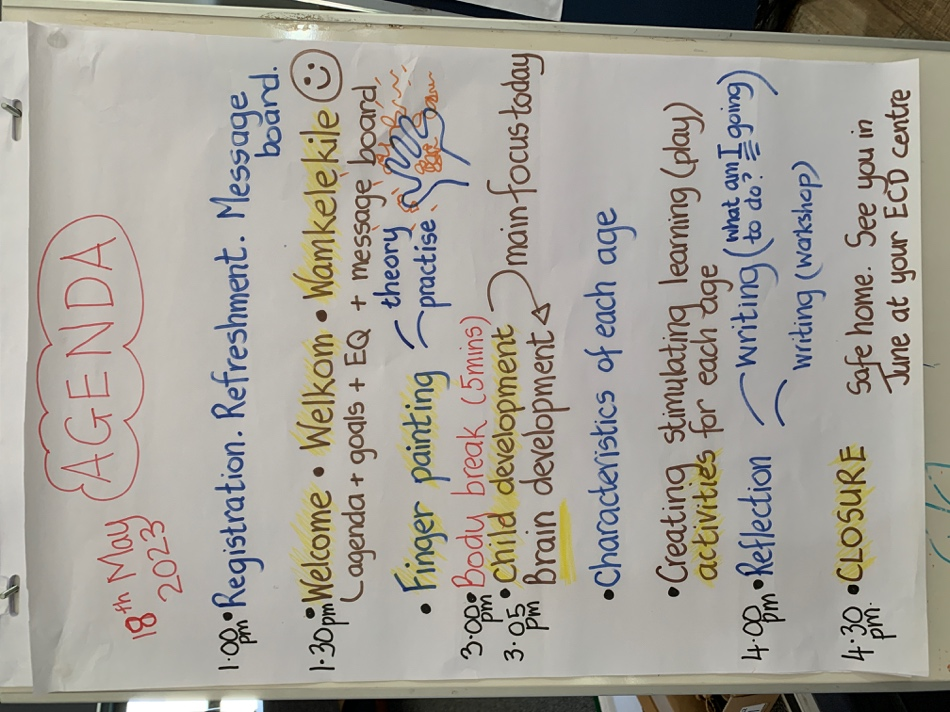 18th May
2023
AGENDA
1:00 pm • Registration. Refreshment. Message
board.
1:30 pm • Welcome • Welkom • Wamkelekile
(agenda + goals + EQ + message board
• Finger painting
theory
practise
3:00 pm • Body break (5mins)
3:05 pm • Child development
Brain development
main focus today
• Characteristics of each age
• Creating stimulating learning (play)
activities for each age
4:00 pm • Reflection
Writing (what am I going
to do?)
Writing (workshop)
4:30 pm. • CLOSURE
Safe home. See you in
June at your ECD centre